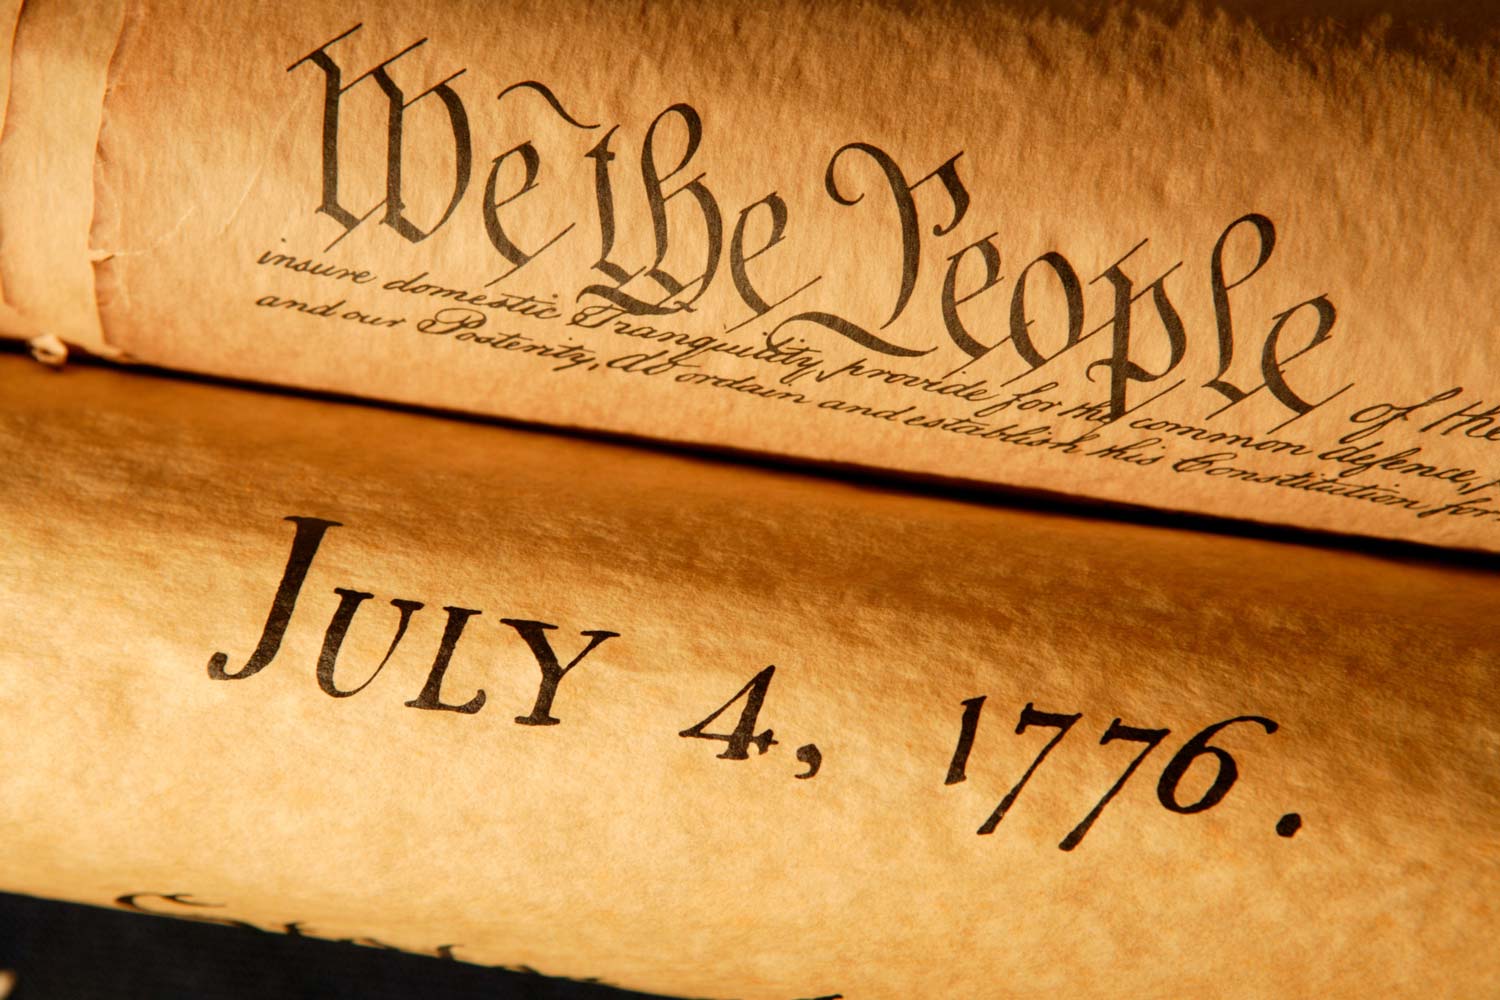 We the People of the
insure domestic Tranquility, provide for the common defence,
and our Posterity, do ordain and establish this Constitution for
JULY 4, 1776.